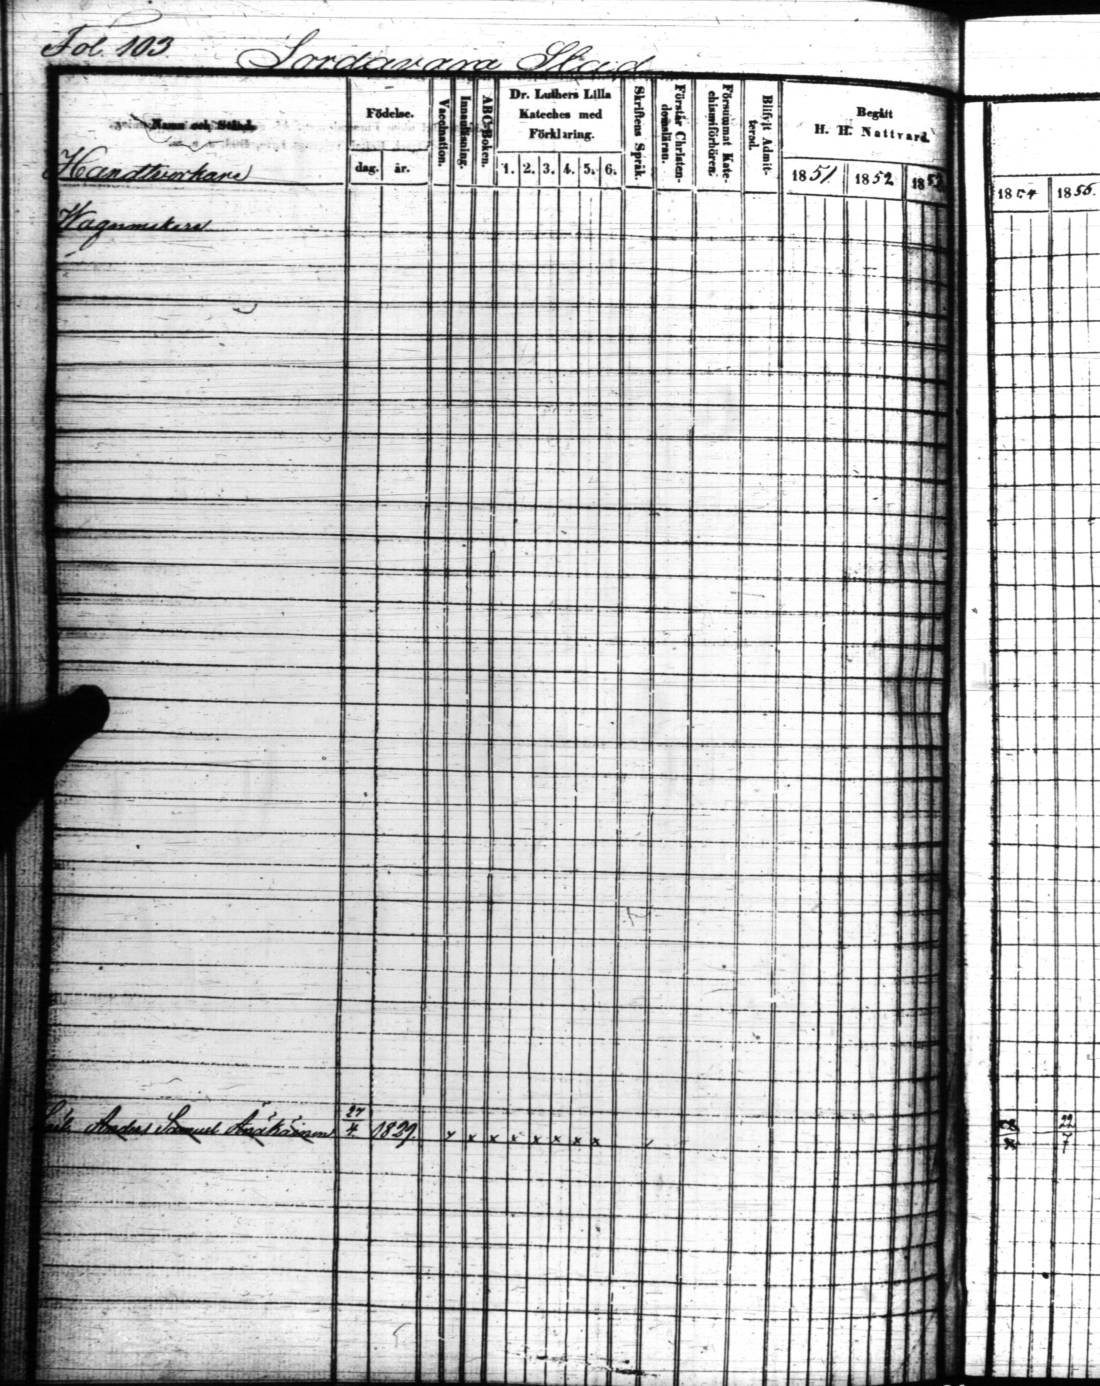 Fol. 103
Sordavara Stad
Namn och Stånd.
Handtverkare
Födelse.
dag. år.
Vaccination.
Innanläsning.
ABC-Boken.
Dr. Luthers Lilla
Kateches med
Förklaring.
1. 2. 3. 4. 5. 6.
Skriftens Språk.
Förstår Christen-
domsläran.
Försummat Kate-
chismiförhören.
Blifvit Admit-
terad.
Begått
H. H. Nattvard.
1851. 1852 1853
1854 1855.
Wagnmakare
Anders Samuel 27/4 1829. x x x x x x x x